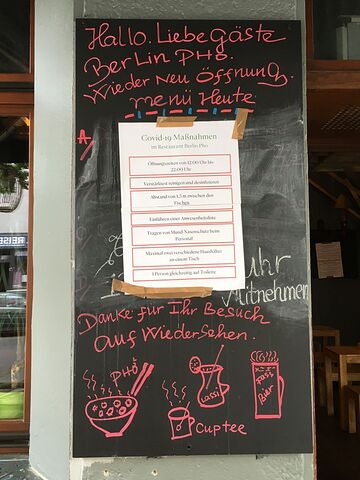 Hallo. Liebe Gäste
Berlin PHO.
Wieder Neu Öffnung.
menü Heute
A
Covid-19 Maßnahmen
im Restaurant Berlin Pho
Öffnungszeiten von 12:00 Uhr bis
22:00 Uhr
Verstärktest reinigen und desinfizieren
Abstand von 1,5 m zwischen den
Tischen
Einführen einer Anwesenheitsliste
Tragen von Mund-Nasenschutz beim
Personal
Maximal zwei verschiedene Haushälter
an einem Tisch
1 Person gleichzeitig auf Toilette
uhr
Mitnehmen
Danke für Ihr Besuch
auf Wiedersehen.
PHỞ
Lassi
Fass
Bier
Cuptee